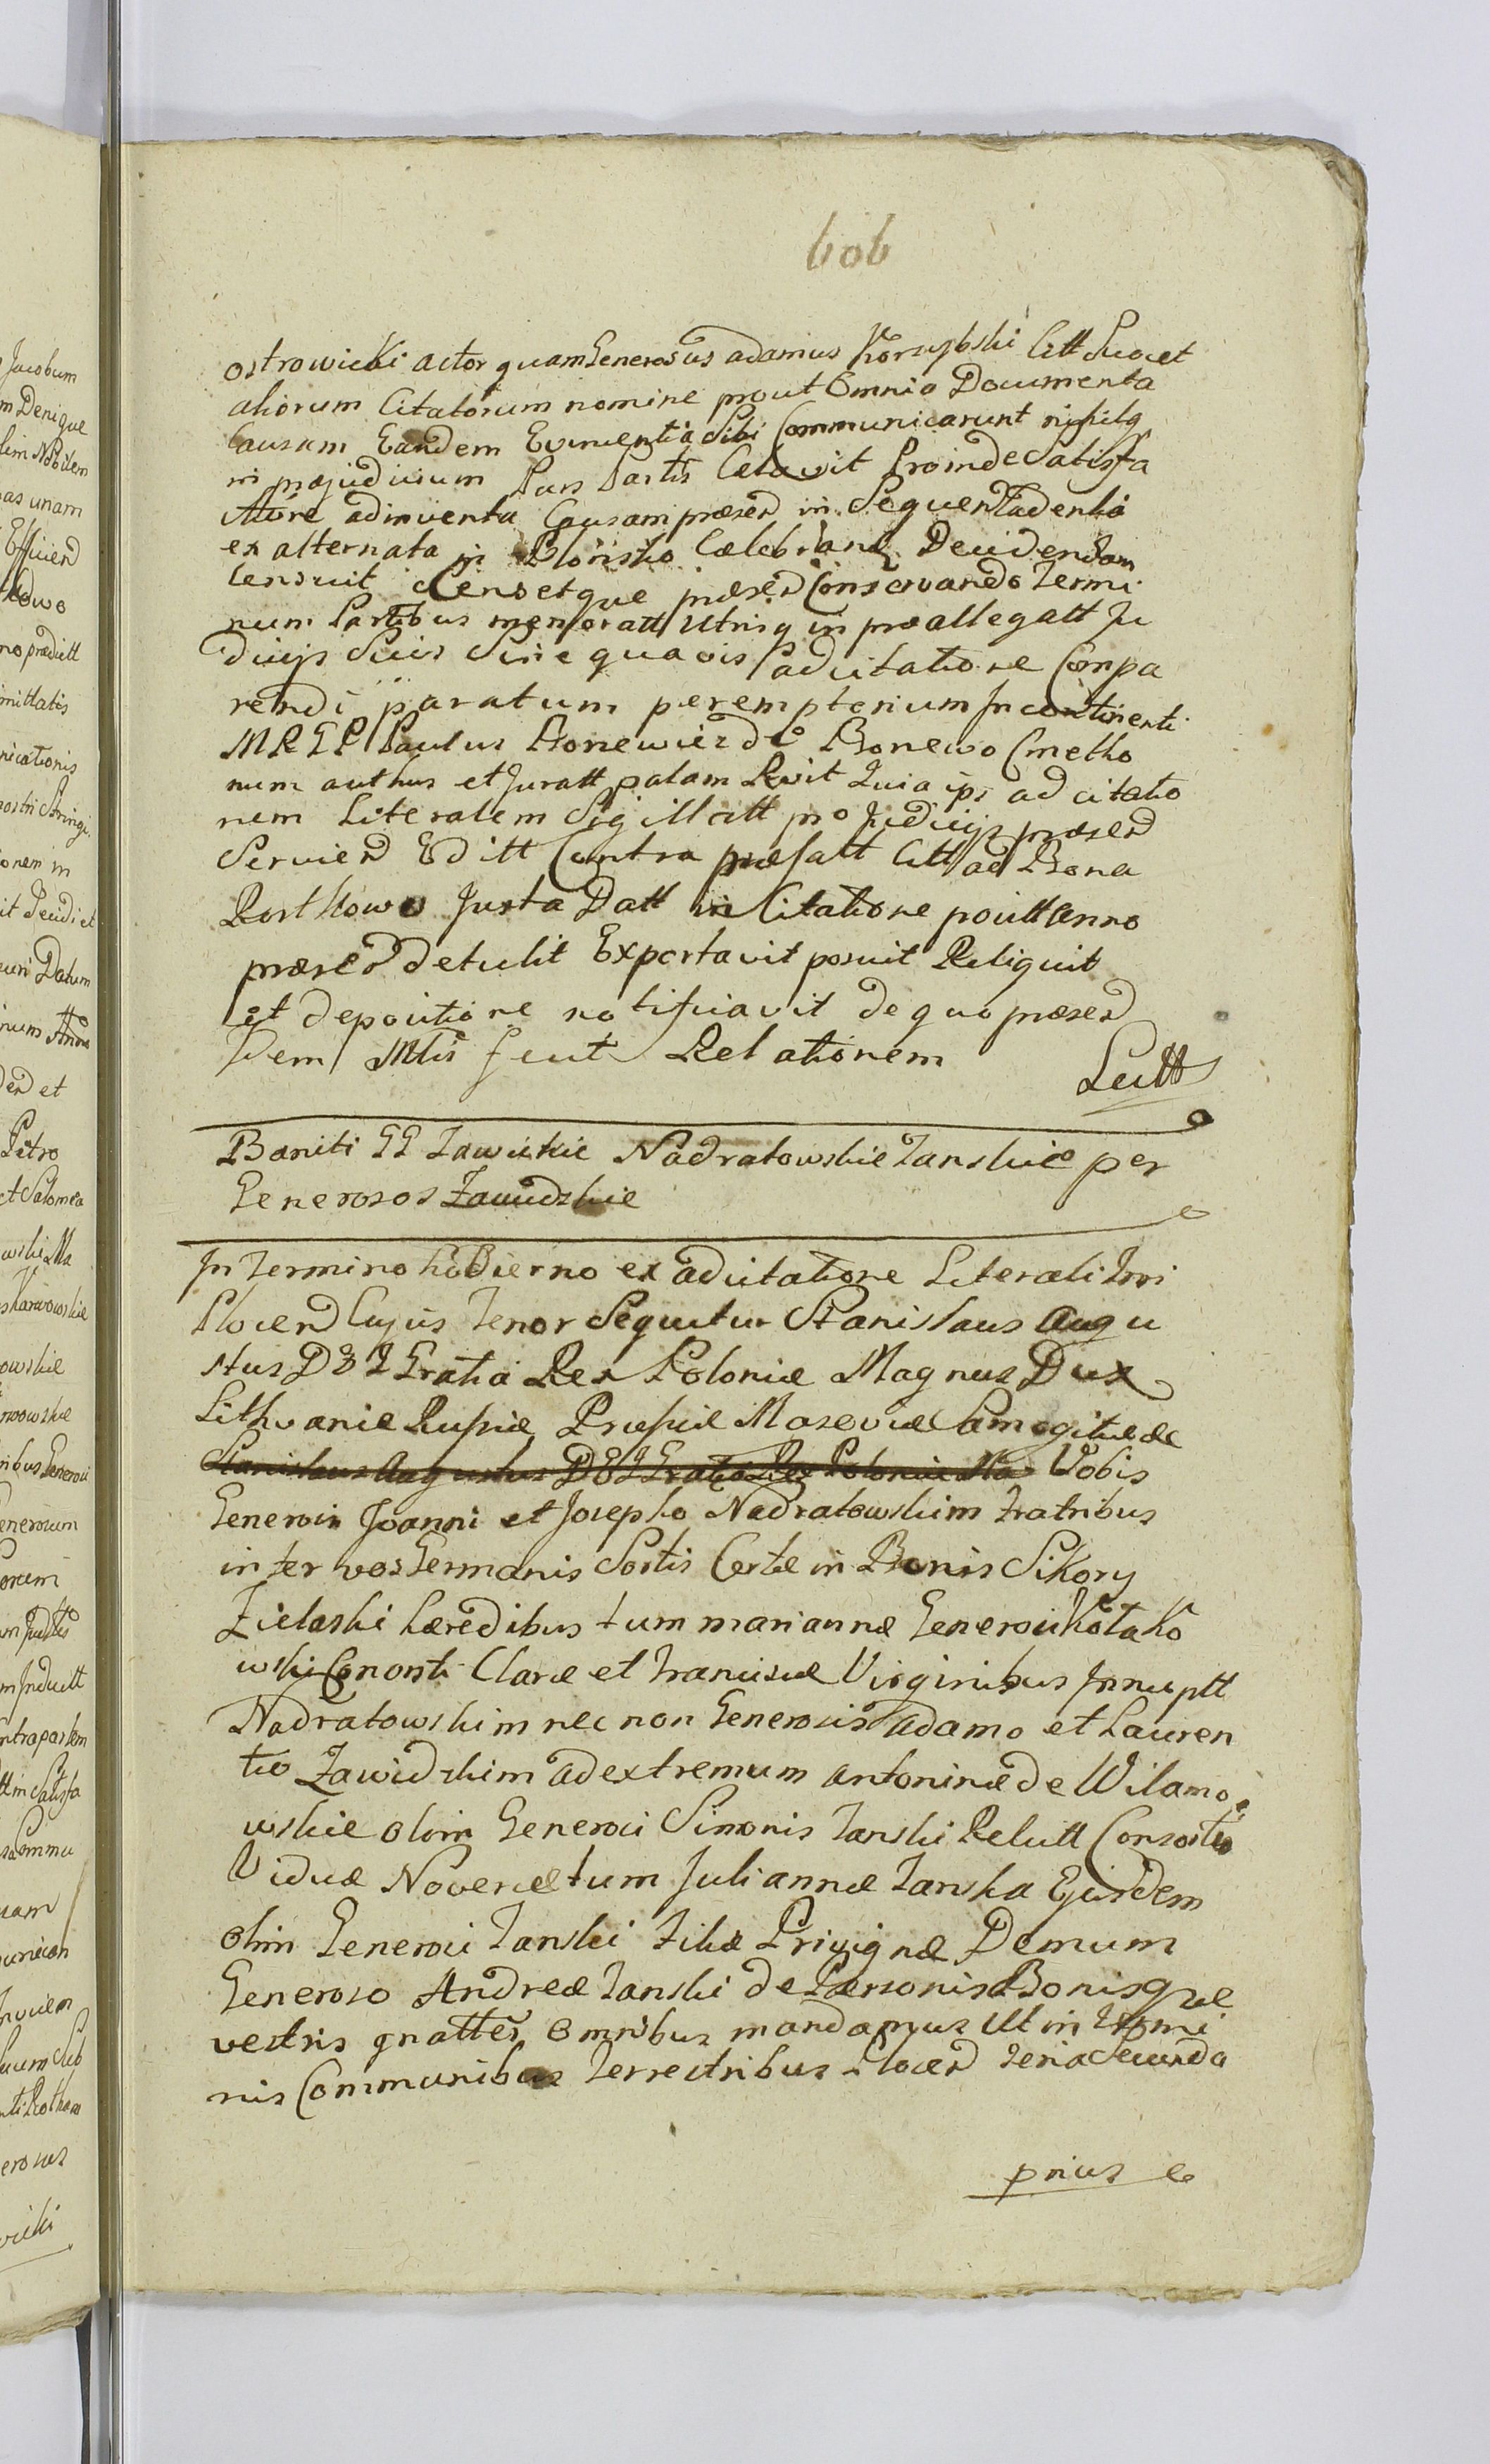 606
ostrowicki actor quam Generosus adamus Korzybski Citt Suo et
aliorum Citatorum nomine prout Omnia Documenta
Causam Eandem Evincentia Sibi Communicarunt nihilq
in præjudicium Pars Partis Celavit Proinde Satisfa
ctione adinventa Causam præsen in Sequen Cadentia
ex alternata in Plonsko Celebrand Decidendam
Censuit Censetque præsen Conservando Termi
num Partibus memoratt Utrisq in præallegatt Ju
dicijs Suis Sine quavis adcitatione Compa
rendi paratum peremptorium Incontinenti
MRGP Paulus Bonewicz de Bonewo Cmetho
num authus et Juratt palam Rvit Quia ips adcitatio
nem Literalem Sigillatt pro Judicijs præsen
Servien Editt Contra præfatt Citt ad Bona
Rostkowo Juxta Datt in Citatione positt Anno
præsen detulit Exportavit posuit Reliquit
et depositione notificavit de quo præsen
idem Mtis fecit Relationem
Lectt
Baniti GG Zawickie Nadratowskie Tanskie per
Generosos Zawidzkie
In Termino hodierno ex adcitatione Literali Trri
Plocen Cujus Tenor Sequitur Stanislaus Augu
stus D E I Gratia Rex Poloniæ Magnus Dux
Lithvaniæ Russiæ Prussiæ Masoviæ Samogitiæ &
Stanislaus Augustus D E I Gratia Rex Poloniæ Ma Vobis
Generosis Joanni et Josepho Nadratowskim Fratribus
inter vos Germanis Sortis Certæ in Bonis Sikory
Zielaski hæredibus tum mariannæ Generosi Kotako
wski Consorti Claræ et Franciscæ Virginibus Innuptt
Nadratowskim nec non Generosis Adamo et Lauren
tio Zawidzkim ad extremum antoninæ de Wilamo
wskie olim Generosi Simonis Tanski Relictt Consorte
Viduæ Novercæ tum Juliannæ Tanska Ejusdem
olim Generosi Tanski Filiæ Privignæ Demum
Generoso Andreæ Tanski de Personis Bonisque
vestris gnatter Omnibus mandamus Ut in Termi
nis Communibus Terrestribus Plocen Feria Secunda
prius